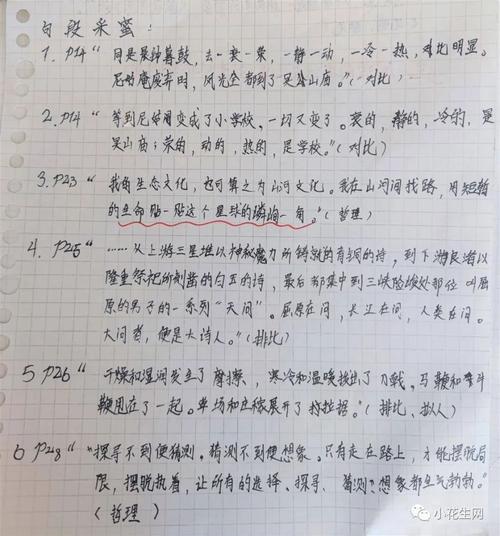 句段采蜜:
1. P14“同是晨钟暮鼓,去一衰一荣,一静一动,一冷一热,对比明显。
尼姑庵废弃时,风光全都到了吴山庙。”(对比)
2. P14“等到尼姑庵变成了小学校,一切又变了。衰的,静的,冷的,是
吴山庙;荣的,动的,热的,是学校。”(对比)
3. P23“我的生态文化,也可算之为山河文化。我在山河间找路,用短暂
的生命贴一贴这个星球的嶙峋一角。”(哲理)
4. P25“……从上游三星堆以神秘魔力所铸就的青铜的诗,到下游良渚以
隆重祭祀所刻凿的白玉的诗,最后都集中到三峡险峻处那位叫屈
原的男子的一系列“天问”。屈原在问,长江在问,人类在问。
大问者,便是大诗人。”(排比)
5 P26“干燥和湿润发生了摩擦,寒冷和温暖拔出了刀戟,马鞭和牵牛
鞭甩在了一起。草场和庄稼展开了拉锯。”(排比、拟人)
6 P28“探寻不到便猜测。猜测不到便想象。只有走在路上,才能摆脱局
限,摆脱执着,让所有的选择、探寻、猜测、想象都生气勃勃。”
(哲理)
小花生网